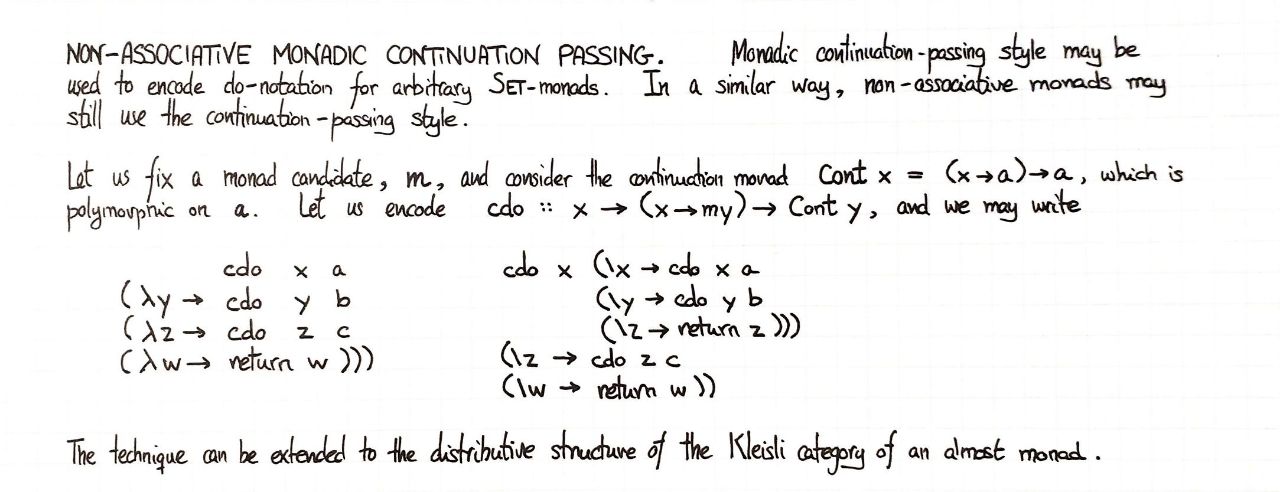 NON-ASSOCIATIVE MONADIC CONTINUATION PASSING. Monadic continuation-passing style may be
used to encode do-notation for arbitrary SET-monads. In a similar way, non-associative monads may
still use the continuation-passing style.
Let us fix a monad candidate, m, and consider the continuation monad Cont x = (x→a)→a, which is
polymorphic on a. Let us encode cdo :: x → (x→my) → Cont y, and we may write
cdo x a
(λy → cdo y b
(λz → cdo z c
(λw → return w )))
cdo x (\x → cdo x a
(\y → cdo y b
(\z → return z )))
(\z → cdo z c
(\w → return w ))
The technique can be extended to the distributive structure of the Kleisli category of an almost monad.